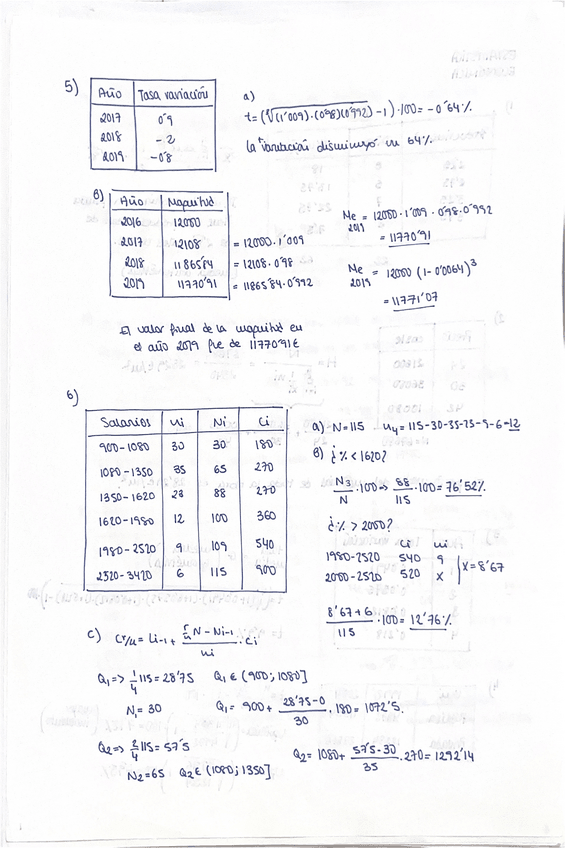 5)
Año Tasa variación
2017 0'9
2018 -2
2019 -0'8
a)
t = (∛(1'009)·(0'98)(0'992) - 1)·100 = -0'64%.
la variación disminuyó un 64%.
b)
Año Magnitud
2016 12000
2017 12108 = 12000·1'009
2018 11865'84 = 12108·0'98
2019 11770'91 = 11865'84·0'992
Me 2019 = 12000·1'009·0'98·0'992
= 11770'91
Me 2019 = 12000 (1-0'0064)³
= 11771'07
El valor final de la magnitud en
el año 2019 fue de 11770'91€
6)
Salarios ni Ni Ci
900-1080 30 30 180
1080-1350 35 65 270
1350-1620 23 88 270
1620-1980 12 100 360
1980-2520 9 109 540
2520-3420 6 115 900
a) N=115 n4 = 115-30-35-23-9-6=12
b) ¿% < 1620?
N3/N ·100 => 88/115 ·100 = 76'52%
¿% > 2000?
Ci ni
1980-2520 540 9
2000-2520 520 x } x = 8'67
8'67+6/115 ·100 = 12'76%
c) Cr/k = Li-1 + (r/k N - Ni-1)/ni · Ci
Q1 => 1/4 115 = 28'75 Q1 ∈ (900; 1080]
N1 = 30 Q1 = 900 + (28'75-0)/30 · 180 = 1072'5.
Q2 => 2/4 115 = 57'5
N2=65 Q2 ∈ (1080; 1350] Q2 = 1080 + (57'5-30)/35 · 270 = 1292'14